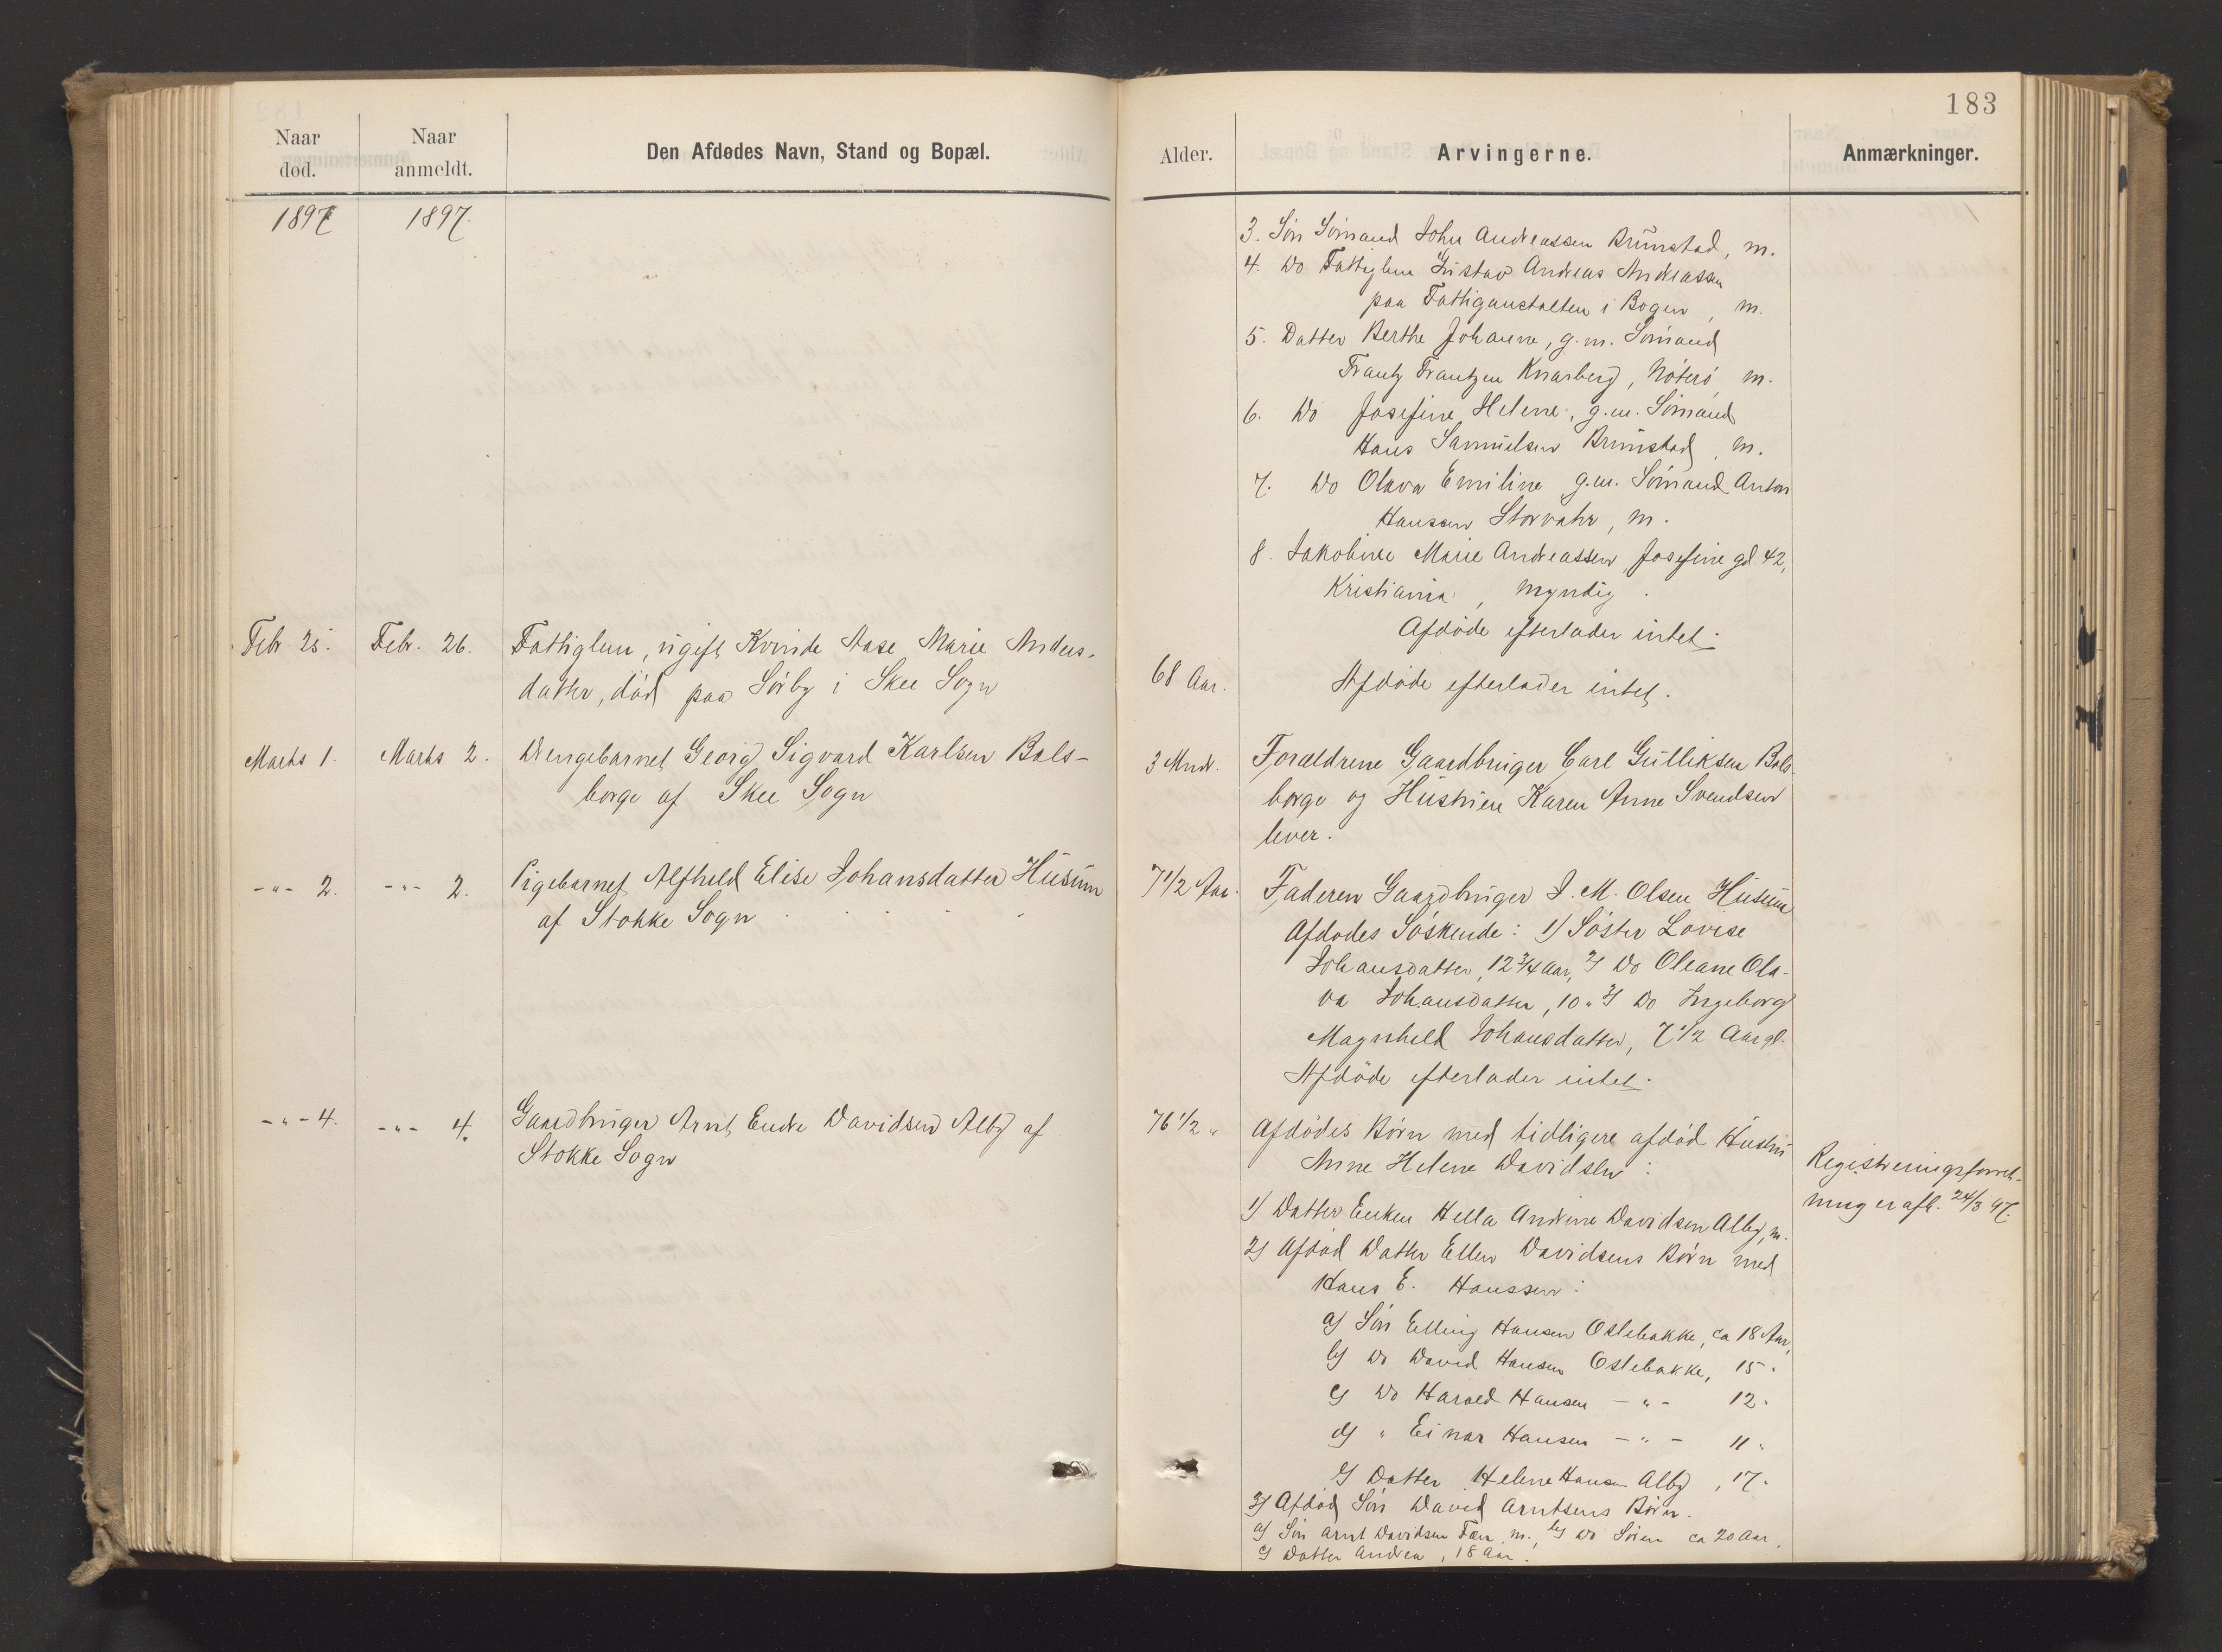 183
Naar død.
Naar anmeldt.
Den Afdødes Navn, Stand og Bopæl.
Alder.
Arvingerne.
Anmærkninger.
1897
1897.
3. Søn Sømand Johan Andreassen Brunstad, m.
4. Do Fattiglem Gustav Andreas Andreassen
paa Fattiganstalten i Bogen, m.
5. Datter Berthe Johanne, g. m. Sømand
Frantz Frantzen Knarberg, Nøterø m.
6. Do Josefine Helene, g. m. Sømand
Hans Samuelsen Brunstad, m.
7. Do Olava Emiline g. m. Sømand Anton
Hansen Storvahr, m.
8. Jakobine Marie Andreassen, Josefine gd. 42,
Kristiania, myndig.
Afdøde efterlader intet.
Febr. 25. Febr. 26. Fattiglem, ugift Kvinde Aase Marie Anders-
datter, død paa Sørby i Skee Sogn
68 Aar. Afdøde efterlader intet.
Marts 1. Marts 2. Drengebarnet Georg Sigvard Karlsen Bals-
borge af Skee Sogn
3 Mndr. Forældrene Gaardbruger Carl Gulliksen Bals-
borge og Hustrue Karen Anne Svendsen
lever.
-"- 2. -"- 2. Pigebarnet Alfhild Elise Johansdatter Husum
af Stokke Sogn
7 1/2 Aar. Faderen Gaardbruger J. M. Olsen Husum
Afdødes Søskende: 1) Søster Lovise
Johansdatter, 12 3/4 Aar, 2) Do Oleane Ola-
va Johansdatter, 10 " 3) Do Ingeborg
Magnhild Johansdatter, 7 1/2 Aar gl.
Afdøde efterlader intet.
-"- 4. -"- 4. Gaardbruger Arnt Davidsen Alby af
Stokke Sogn
76 1/2 " Afdødes Børn med tidligere afdød Hustru
Anne Helene Davidsen:
Registreringsforret-
ning er afh. 24/3 97.
1) Datter Enken Hella Andrine Davidsen Alby, m.
2) Afdød Datter Ellen Davidsens Børn med
Hans E. Hanssen:
a) Søn Elling Hansen Oslebakke, ca 18 Aar,
b) Do David Hansen Oslebakke, 15 "
c) Do Harald Hansen -"- 12 "
d) " Einar Hansen -"- 11 "
e) Datter Helene Hansen Alby, 17 "
3) Afdød Søn David Arntsens Børn.
a) Søn Arnt Davidsen m., b) Do Søren ca 20 Aar,
c) Datter Andrea, 18 Aar.